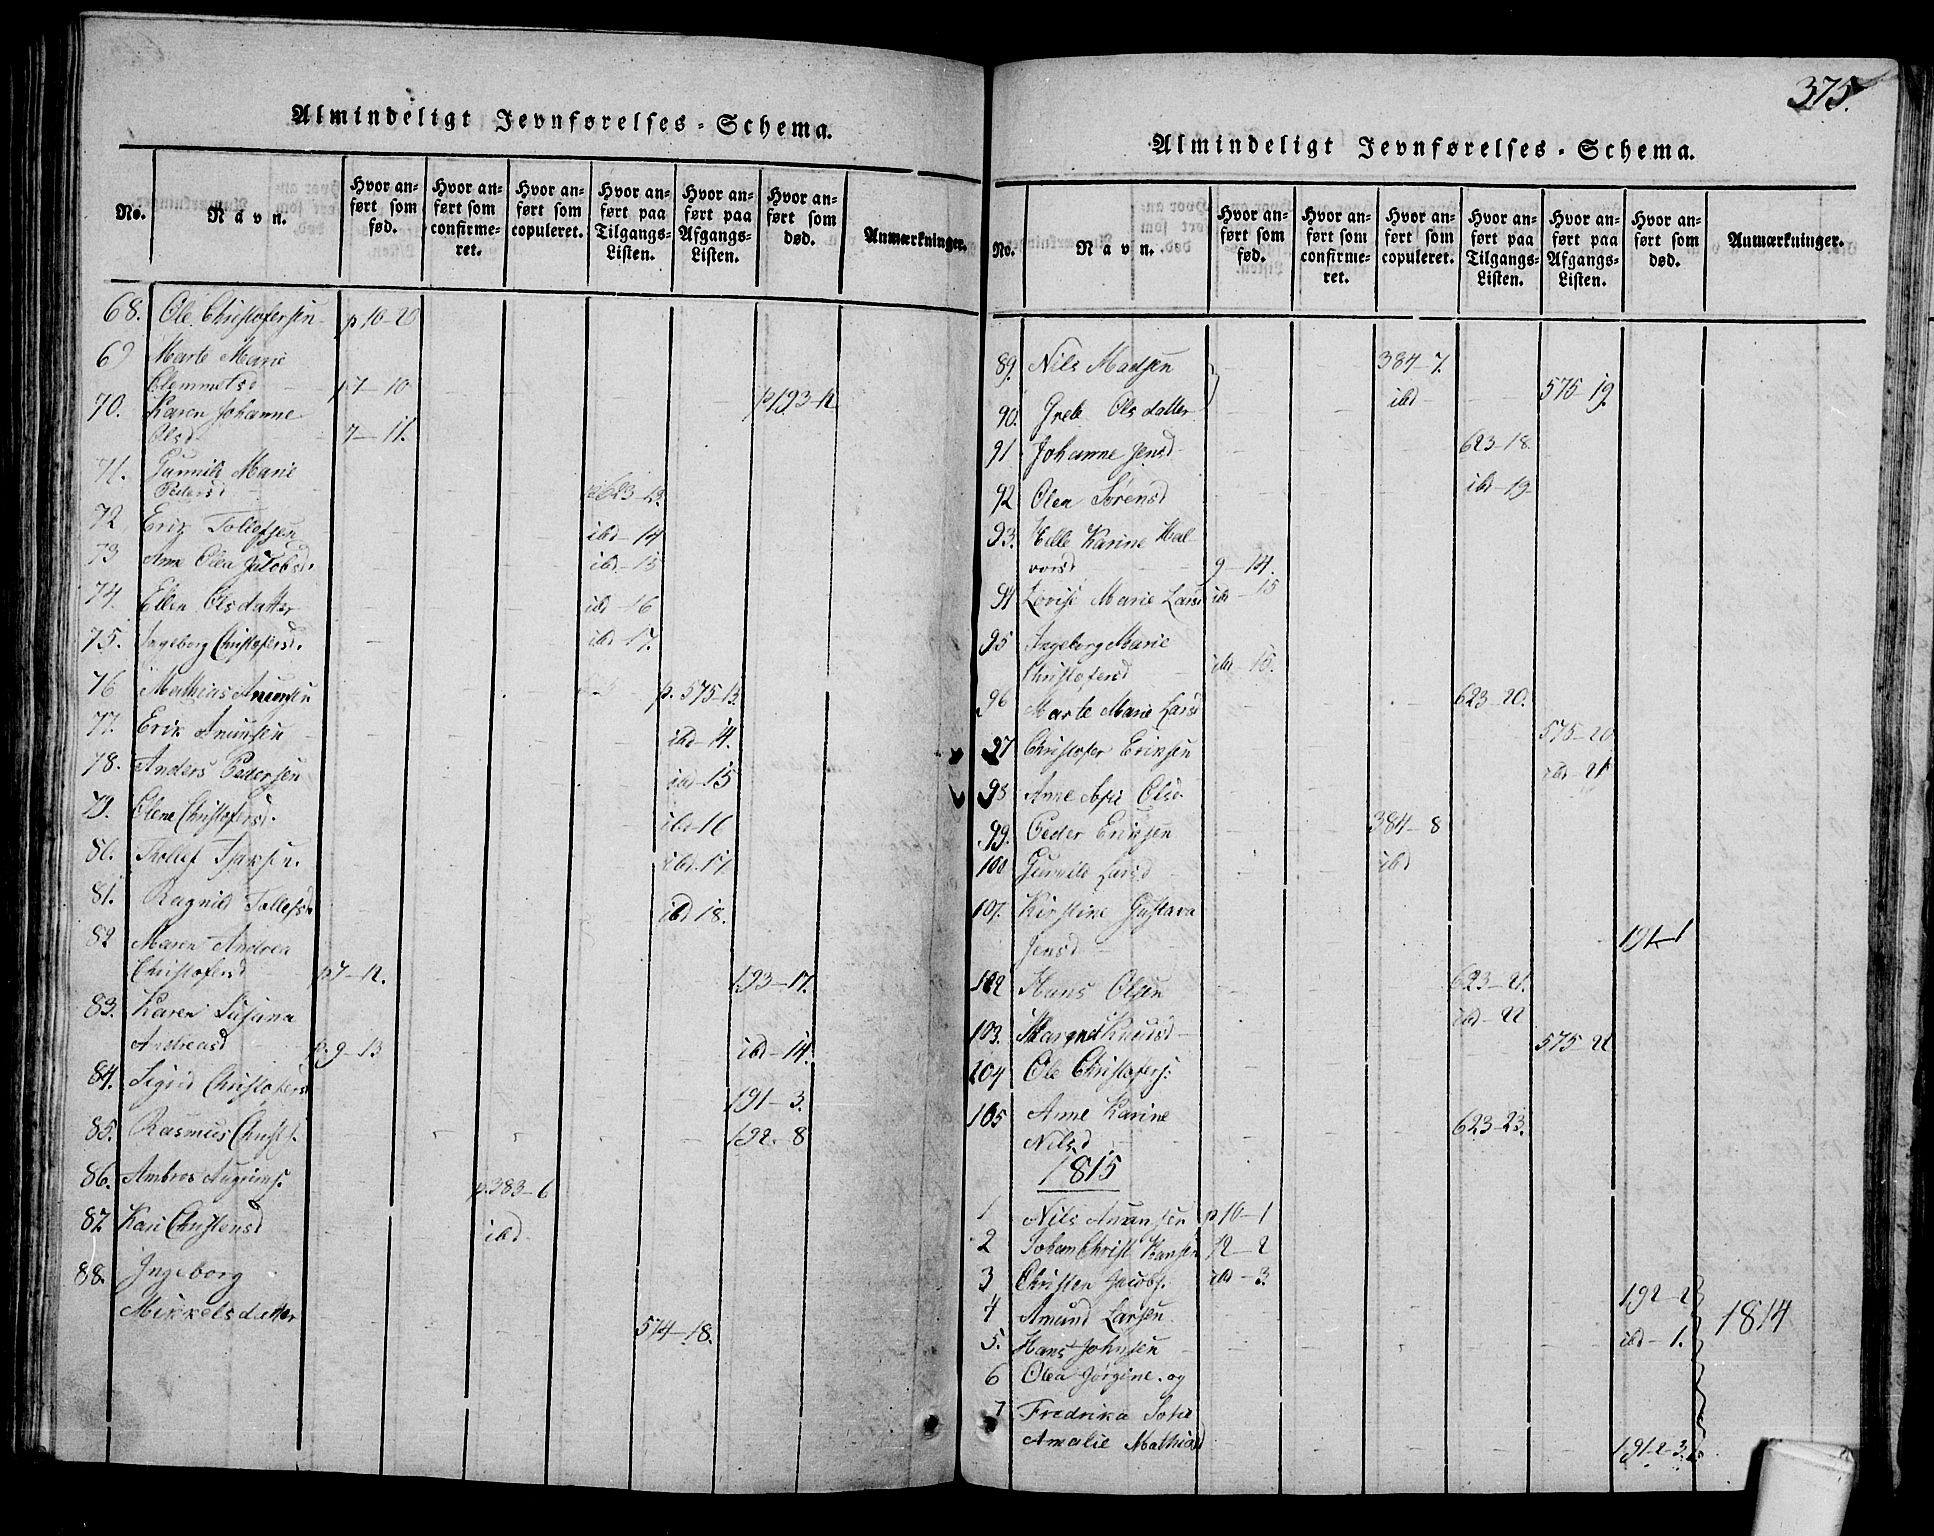 Almindeligt Jevnførelses-Schema.
No. Navn. Hvor anført som fød. Hvor anført som confirmeret. Hvor anført som copuleret. Hvor anført paa Tilgangs-Listen. Hvor anført paa Afgangs-Listen. Hvor anført som død. Anmærkninger.
68. Ole Christofersen p 10-20
69 Marte Marie
Clemmetsd p7-10
70. Karen Johanne p193-12
Olsd 7-11.
71. Gunnild Marie
Pedersd p623-13.
72 Erik Tollefsen ibd-14
73 Anne Olea Jacobsd. ibd-15
74. Ellen Olsdatter ibd-16
75. Ingeborg Christofersd. ibd-17.
76 Mathias Anunsen p. 575-13.
77. Erik Anunsen ibd-14.
78. Anders Pedersen ibd-15
79. Olene Christofersd. ibd-16
80. Thollef Isaksen. ibd-17
81. Ragnild Tollefsd. ibd 18.
82 Maren Andrea
Christofersd p7-12. 193-17.
83. Karen Susana
Andreasd p. 9-13 ibd-14.
84. Sigrid Christofersd 191-3.
85. Rasmus Christ. 192-8
86. Ambros p.383-6
87 Kari Christensd ibd.
88. Ingeborg
Mikkelsdatter 574-18.
375.
Almindeligt Jevnførelses-Schema.
No. Navn. Hvor anført som fød. Hvor anført som confirmeret. Hvor anført som copuleret. Hvor anført paa Tilgangs-Listen. Hvor anført paa Afgangs-Listen. Hvor anført som død. Anmærkninger.
89. Nils Madsen 384-7.
90. Grete Olsdatter ibd 575-19.
91 Johanne Jensd 623-18.
92 Olea Sørensd ibd-19
93. Helle Karine Hal
vorsd 9-14.
94 Lovise Marie Larsd ibd-15
95 Ingeborg Marie
Christofersd ibd-16.
96 Marte Marie Larsd 623-20.
97 Christofer Eriksen 575-20
98 Anne Sofie Olsd ibd-21
99. Peder Eriksen 384-8
100 Gunnild Larsd ibd
101. Kirstine Gustava
Jensd 191-1
102 Hans Olsen 623-21.
103. Margret Knudsd ibd-22
104 Ole Christofers: 575-22
105 Anne Karine
Nilsd 623-23.
1815
1 Nils Anunsen p10-1
2 Johan Christ Hansen 12-2
3 Christen Jacobs. ibd-3.
4 Amund Larsen 192-2
5. Hans Johnsen ibd-1. 1814
6 Olea Jørgine. og
7 Fredrika Sofie
Amalie Mathiasd 191-2-3.